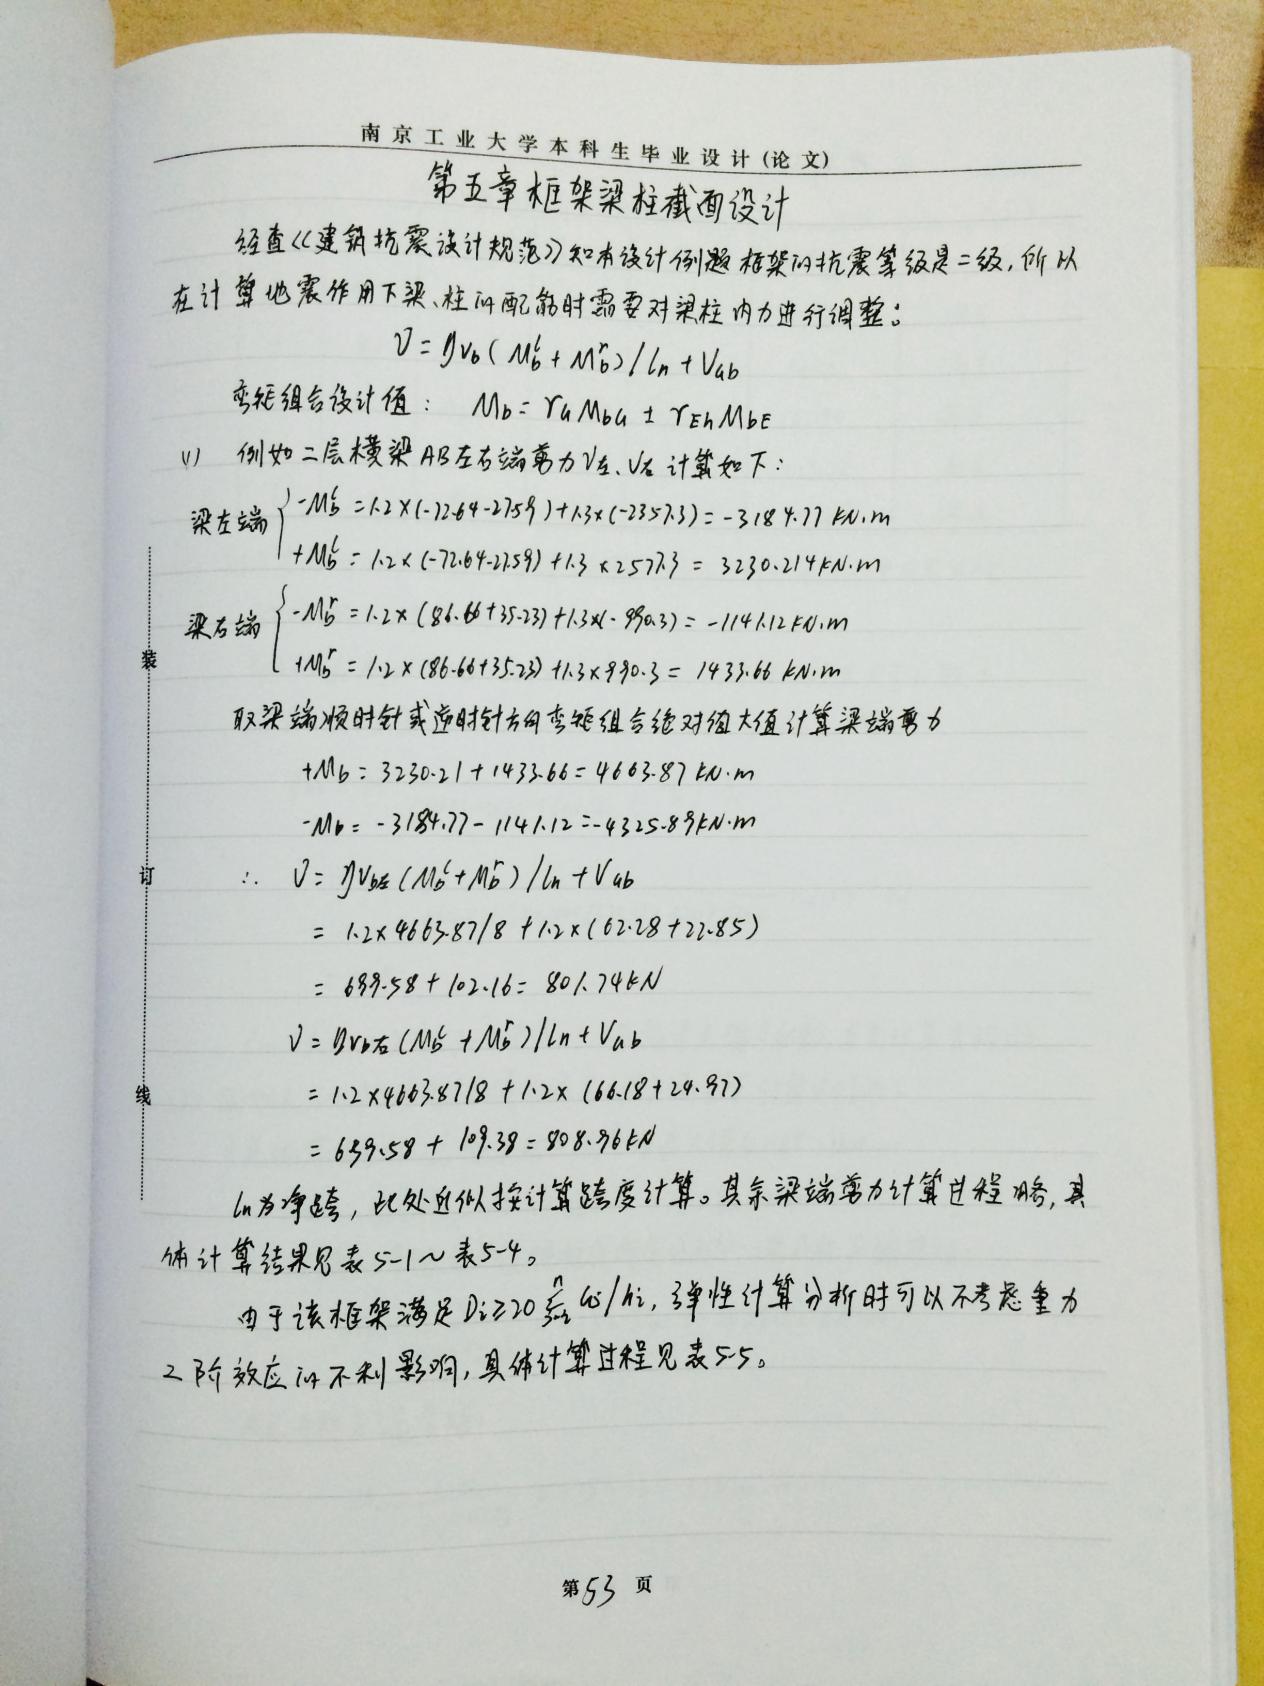 南京工业大学本科生毕业设计(论文)
第五章框架梁柱截面设计
经查《建筑抗震设计规范》知本设计例题框架的抗震等级是二级,所以
在计算地震作用下梁、柱的配筋时需要对梁柱内力进行调整:
V=ηvb(Mb^l+Mb^r)/ln+VGb
弯矩组合设计值: Mb=rGMbG±rEhMbE
(1) 例如二层横梁AB左右端剪力V左、V右计算如下:
梁左端
-Mb^l=1.2×(-72.64-27.59)+1.3×(-2357.3)=-3184.77KN.m
+Mb^l=1.2×(-72.64-27.59)+1.3×2577.3=3230.214KN.m
梁右端
-Mb^r=1.2×(86.66+35.23)+1.3×(-990.3)=-1141.12KN.m
+Mb^r=1.2×(86.66+35.23)+1.3×990.3=1433.66KN.m
取梁端顺时针或逆时针方向弯矩组合绝对值大值计算梁端剪力
+Mb=3230.21+1433.66=4663.87KN.m
-Mb=-3184.77-1141.12=-4325.89KN.m
∴ V=ηvb左(Mb^l+Mb^r)/ln+VGb
=1.2×4663.87/8+1.2×(62.28+22.85)
=699.58+102.16=801.74KN
V=ηvb右(Mb^l+Mb^r)/ln+VGb
=1.2×4663.87/8+1.2×(66.18+24.97)
=699.58+109.38=808.96KN
ln为净跨,此处近似按计算跨度计算。其余梁端剪力计算过程略,具
体计算结果见表5-1~表5-4。
由于该框架满足Di≥20∑Gj/hi,弹性计算分析时可以不考虑重力
二阶效应的不利影响,具体计算过程见表5-5。
装
订
线
第53页